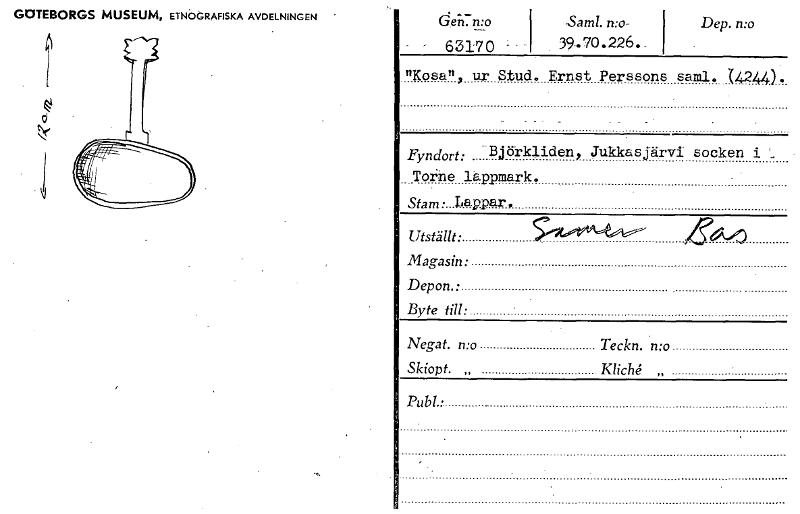 GÖTEBORGS MUSEUM, ETNOGRAFISKA AVDELNINGEN
Gen. n:o Saml. n:o Dep. n:o
63170 39.70.226.
"Kosa", ur Stud. Ernst Perssons saml. (4244).
Fyndort: Björkliden, Jukkasjärvi socken i
Torne lappmark.
Stam: Lappar.
Utställt: Samer Bas
Magasin:
Depon.:
Byte till:
Negat. n:o Teckn. n:o
Skiopt. „ Kliché „
Publ.: